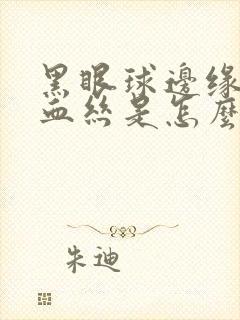 黑眼球邊緣
血絲是怎麼
朱迪